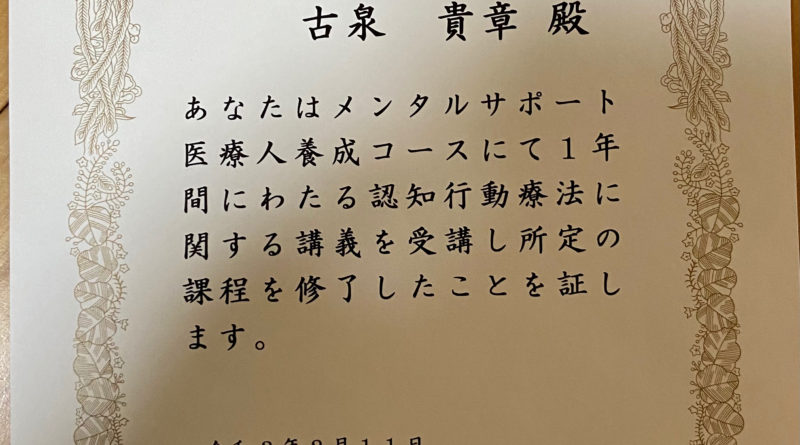 古泉 貴章 殿
あなたはメンタルサポート
医療人養成コースにて１年
間にわたる認知行動療法に
関する講義を受講し所定の
課程を修了したことを証し
ます。